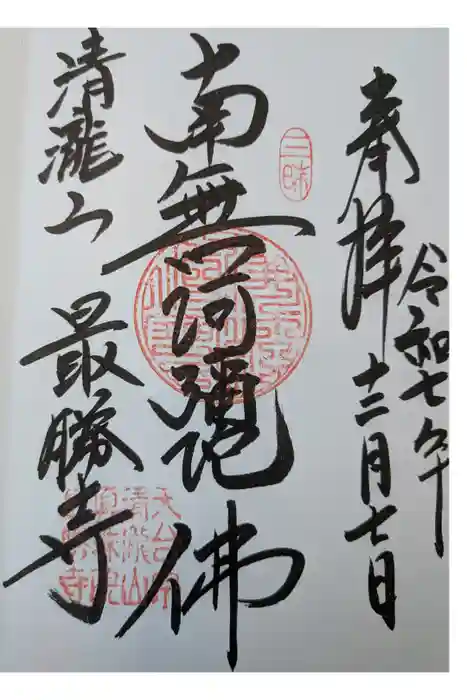 奉拝
令和七年
十二月七日
三昧
南無阿彌陀佛
清瀧山 最勝寺
天台宗
清瀧山